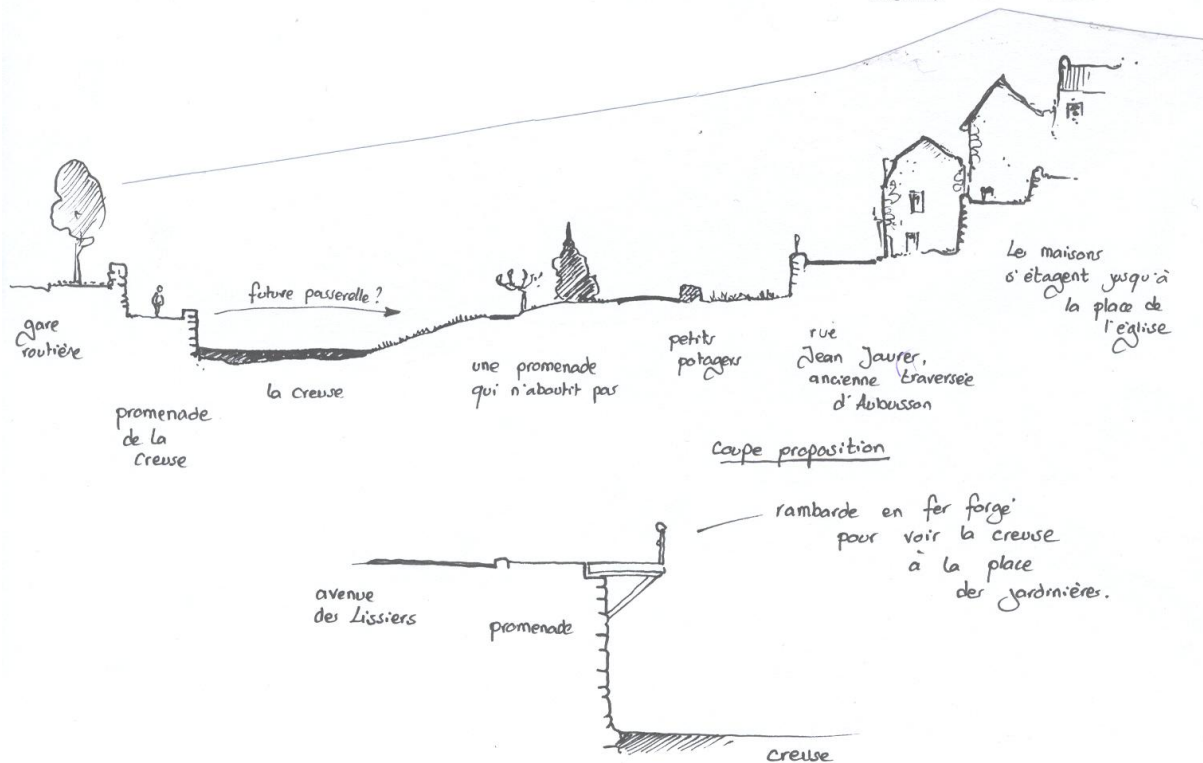 future passerelle ?
gare
routière
la creuse
promenade
de la
creuse
une promenade
qui n'aboutit pas
petits
potagers
rue
Jean Jaurer,
ancienne traversée
d'Aubusson
Le maisons
s'étagent jusqu'à
la place de
l'église
Coupe proposition
rambarde en fer forgé
pour voir la creuse
à la place
des jardinières.
avenue
des Lissiers
promenade
creuse